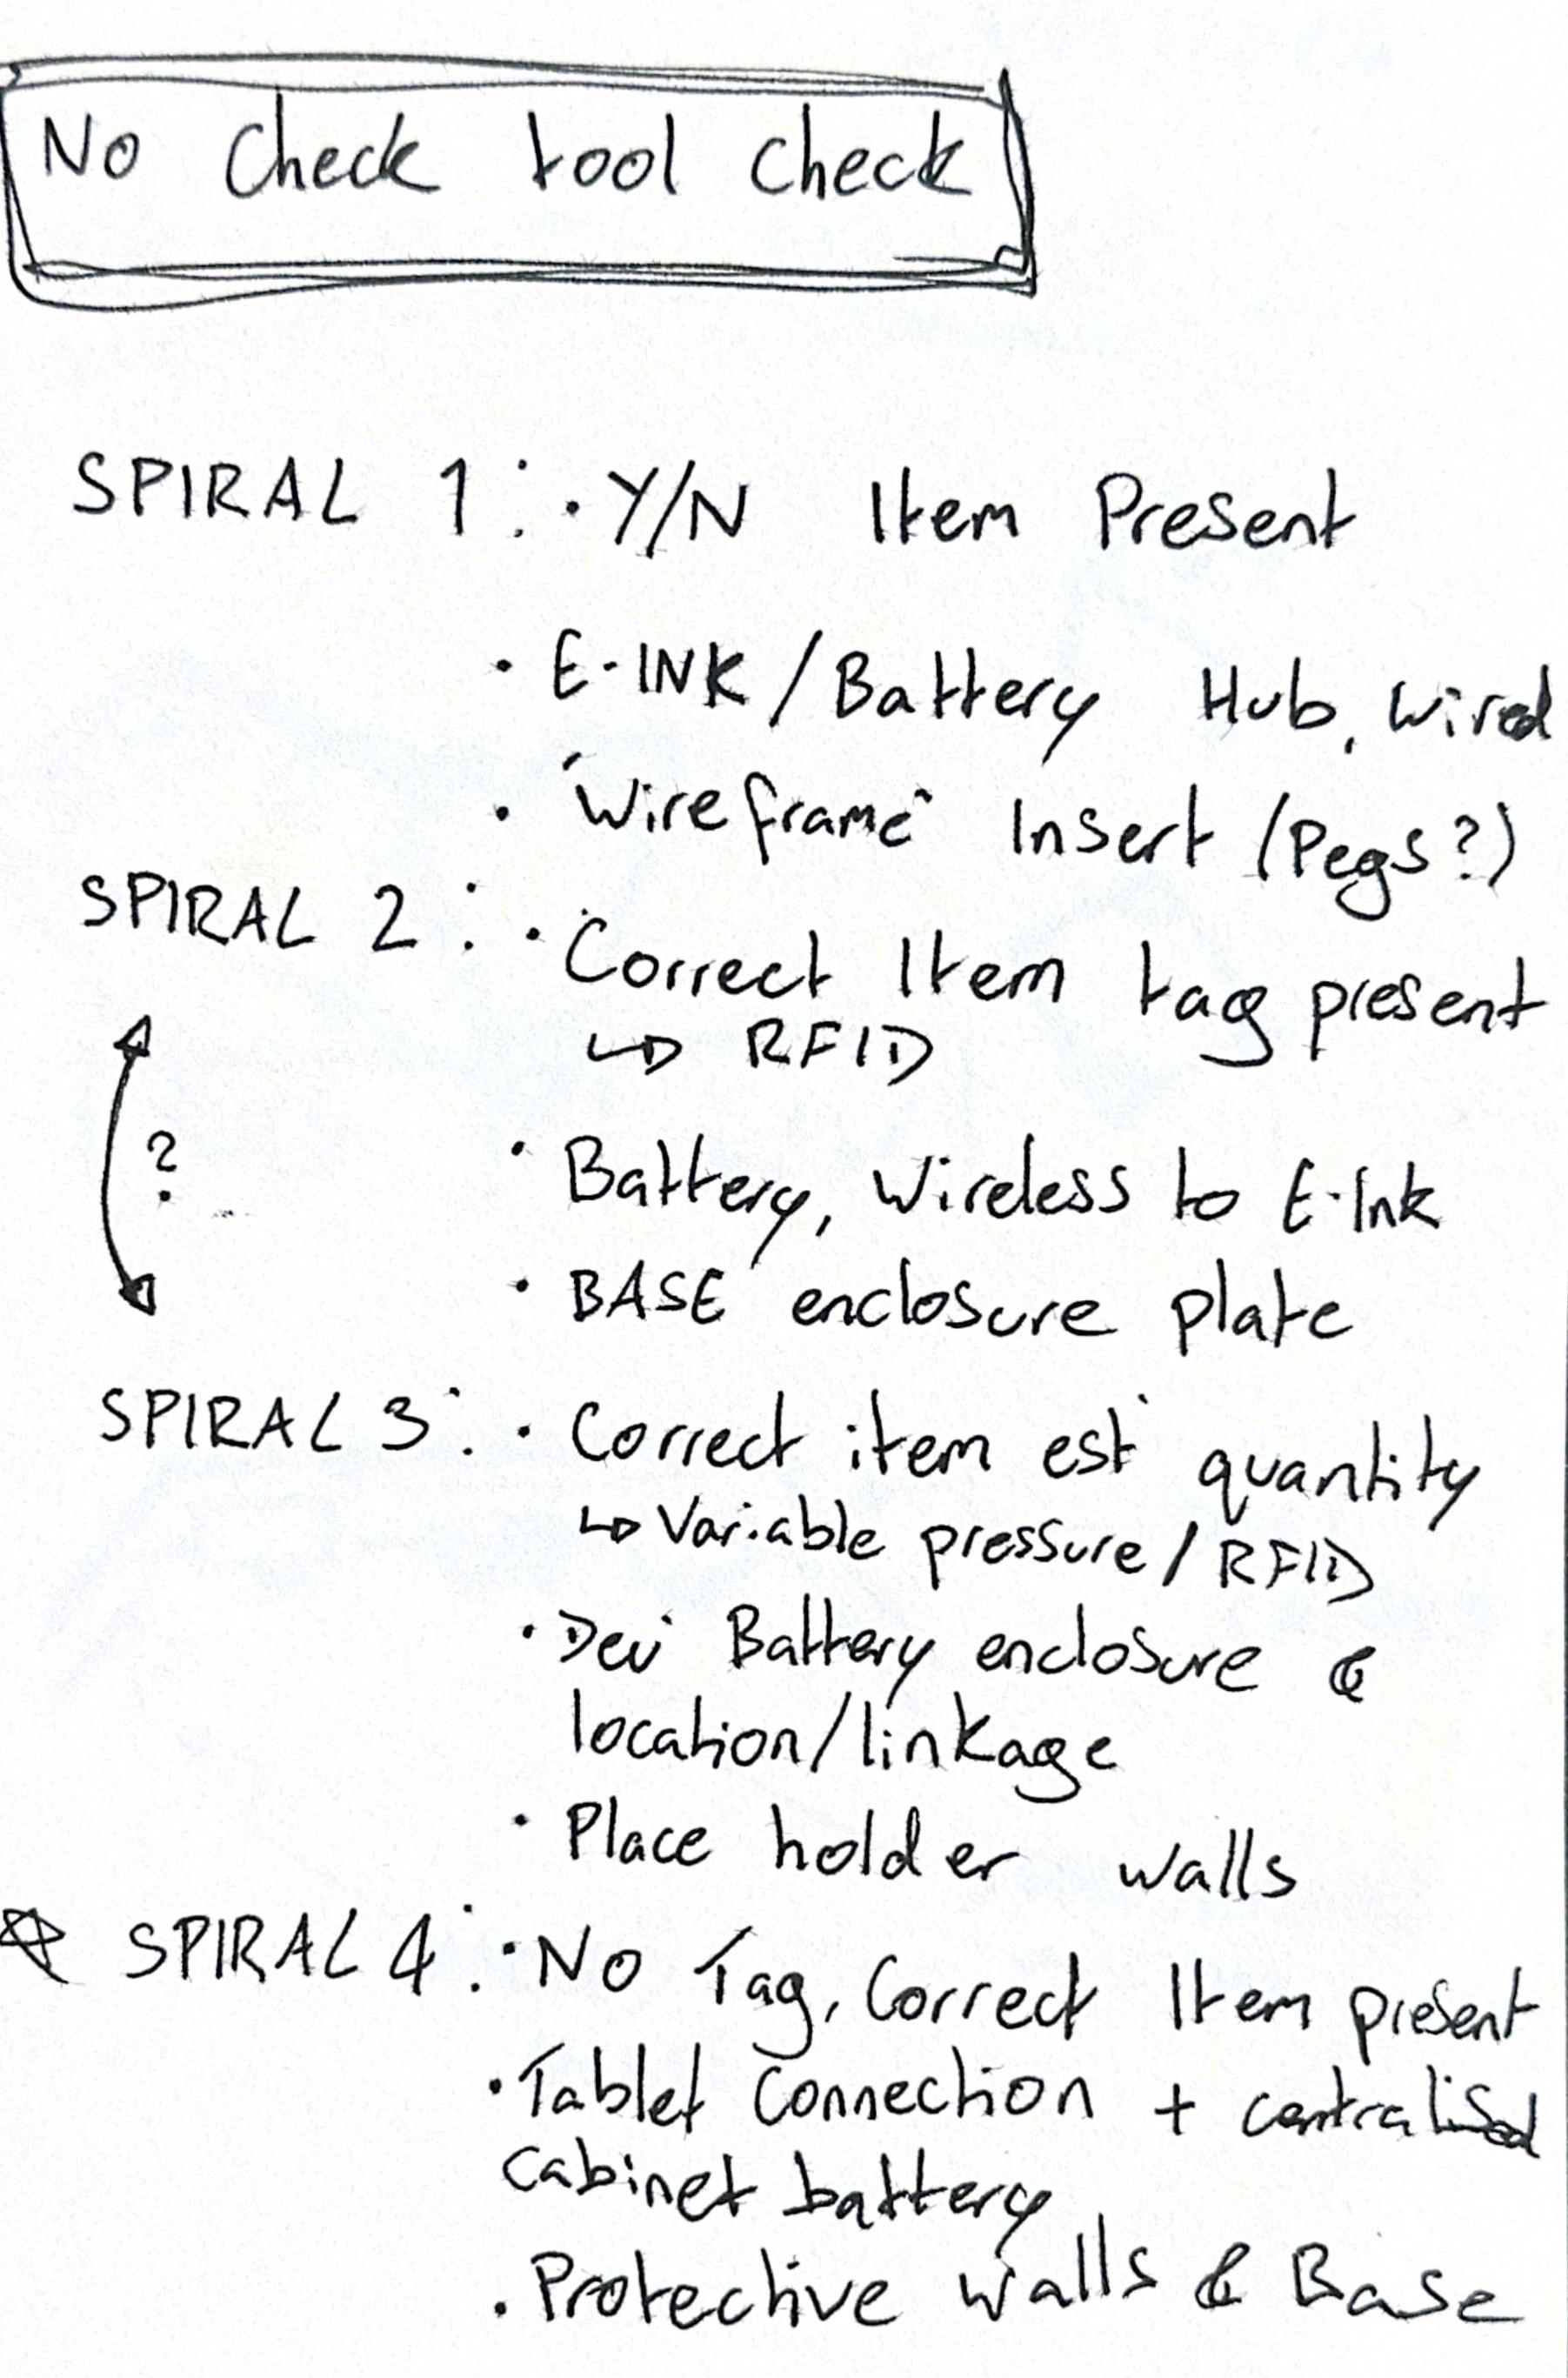 No Check tool check
SPIRAL 1: · Y/N Item Present
· E-INK / Battery Hub, wired
· "Wireframe" Insert (Pegs?)
SPIRAL 2: · Correct Item tag present
↳ RFID
?
· Battery, Wireless to E-Ink
· BASE enclosure plate
SPIRAL 3: · Correct item est' quantity
↳ Variable pressure / RFID
· Dev' Battery enclosure &
location/linkage
· Place holder walls
☆ SPIRAL 4: · No Tag, Correct Item present
· Tablet Connection + centralised
cabinet battery
· Protective walls & Base